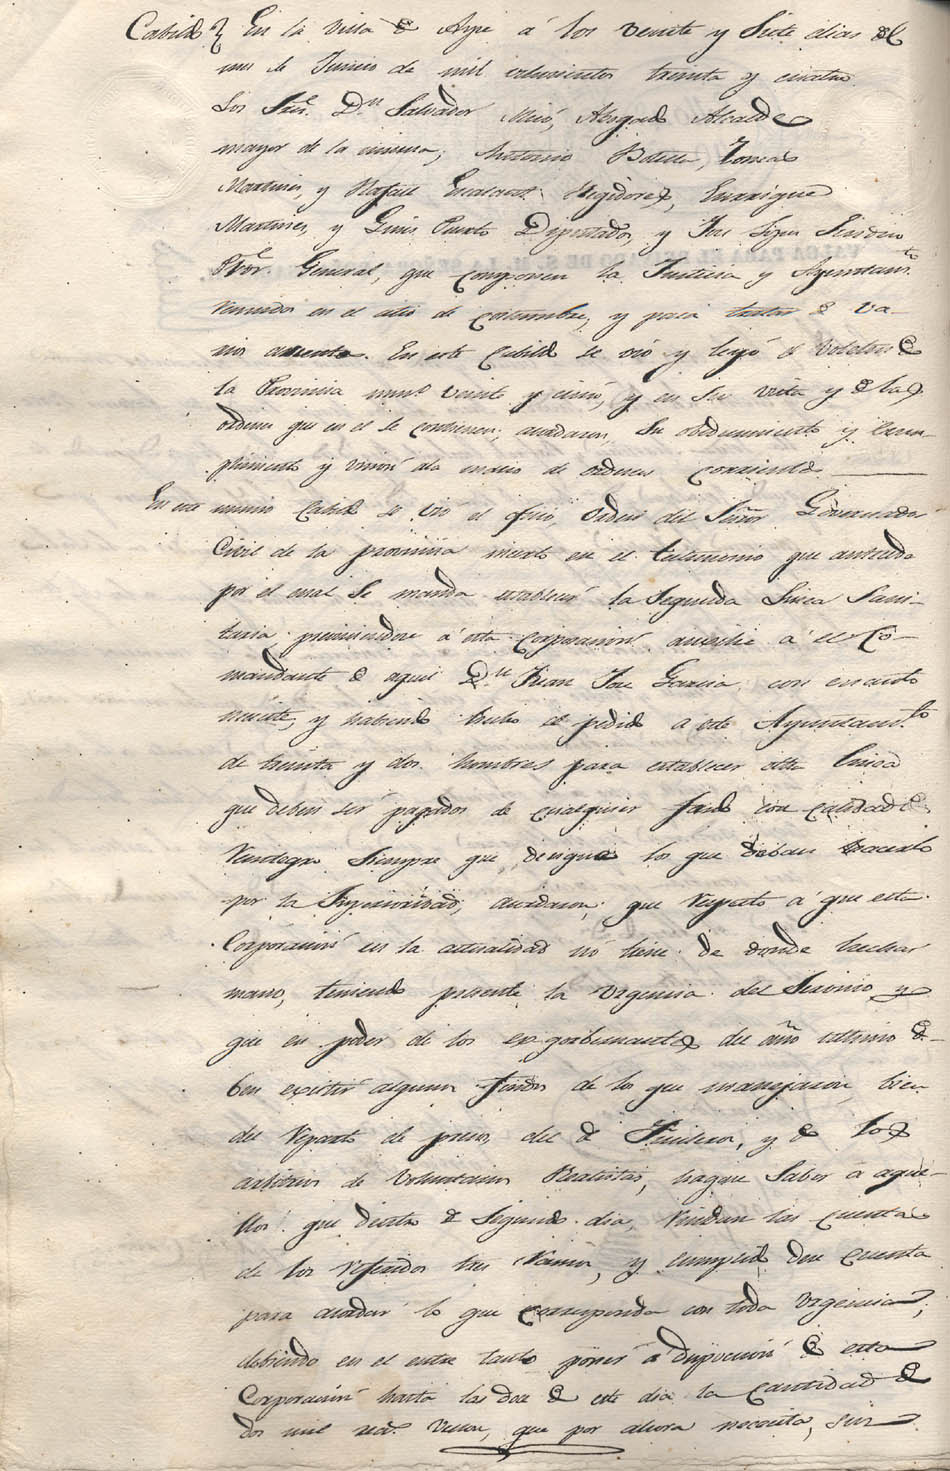 Cabildo En la Villa de Aspe á los veinte y siete dias del
mes de Junio de mil ochocientos treinta y cuatro
Los Sres. Dn. Salvador Miró, Abogado Alcalde
mayor de la misma; Antonio Botella, Tomas
Martines, y Rafael Regidores, Enrrique
Martines, y Gines Puerto Diputados, y Jose Sindico
Pror. General, que componen la Justicia y Ayuntamto.
reunidos en el sitio de costumbre, y para tratar de va-
rios asuntos. En este Cabildo se vió y leyó el Boletin de
la Provincia numo. veinte y cinco, y en su vista y de las
ordenes que en el se contienen; acordaron, su obedecimiento y cum-
plimiento y union al de ordenes corriente
En este mismo Cabildo se vió el oficio, orden del Señor Governador
Civil de la provincia inserto en el testimonio que antecede
por el cual se manda establecer la segunda Linea Sani-
taria previniendose á esta Corporacion auxilie á el Co-
mandante de aqui Dn. Juan Jose Garcia con cuanto
necesite, y habiendo hecho el pedido a este Ayuntamto.
de treinta y dos hombres para establecer otra linea
que deben ser pagados de cualquier fondo con calidad de
reintegro siempre que designe los que deban hacerlo
por la Superioridad; acordaron; que respecto á que esta
Corporacion en la actualidad no tiene de donde hechar
mano, teniendo presente la urgencia del servicio y
que en poder de los ex-gobernantes del año ultimo de-
ben existir algunos fondos de los que manejaron, bien
del reparto de presos, del de Fusileros, y de los
arbitrios de Voluntarios Realistas, hagase saber a aque-
llos que dentro de segundo dia, rindan las cuentas
de los referidos tres ramos, y cumplido den cuenta
para acordar lo que corresponda con toda urgencia;
debiendo en el entre tanto poner á disposicion de esta
Corporacion hasta las doce de este dia la cantidad de
dos mil reas. vellon, que por ahora necesita, sin